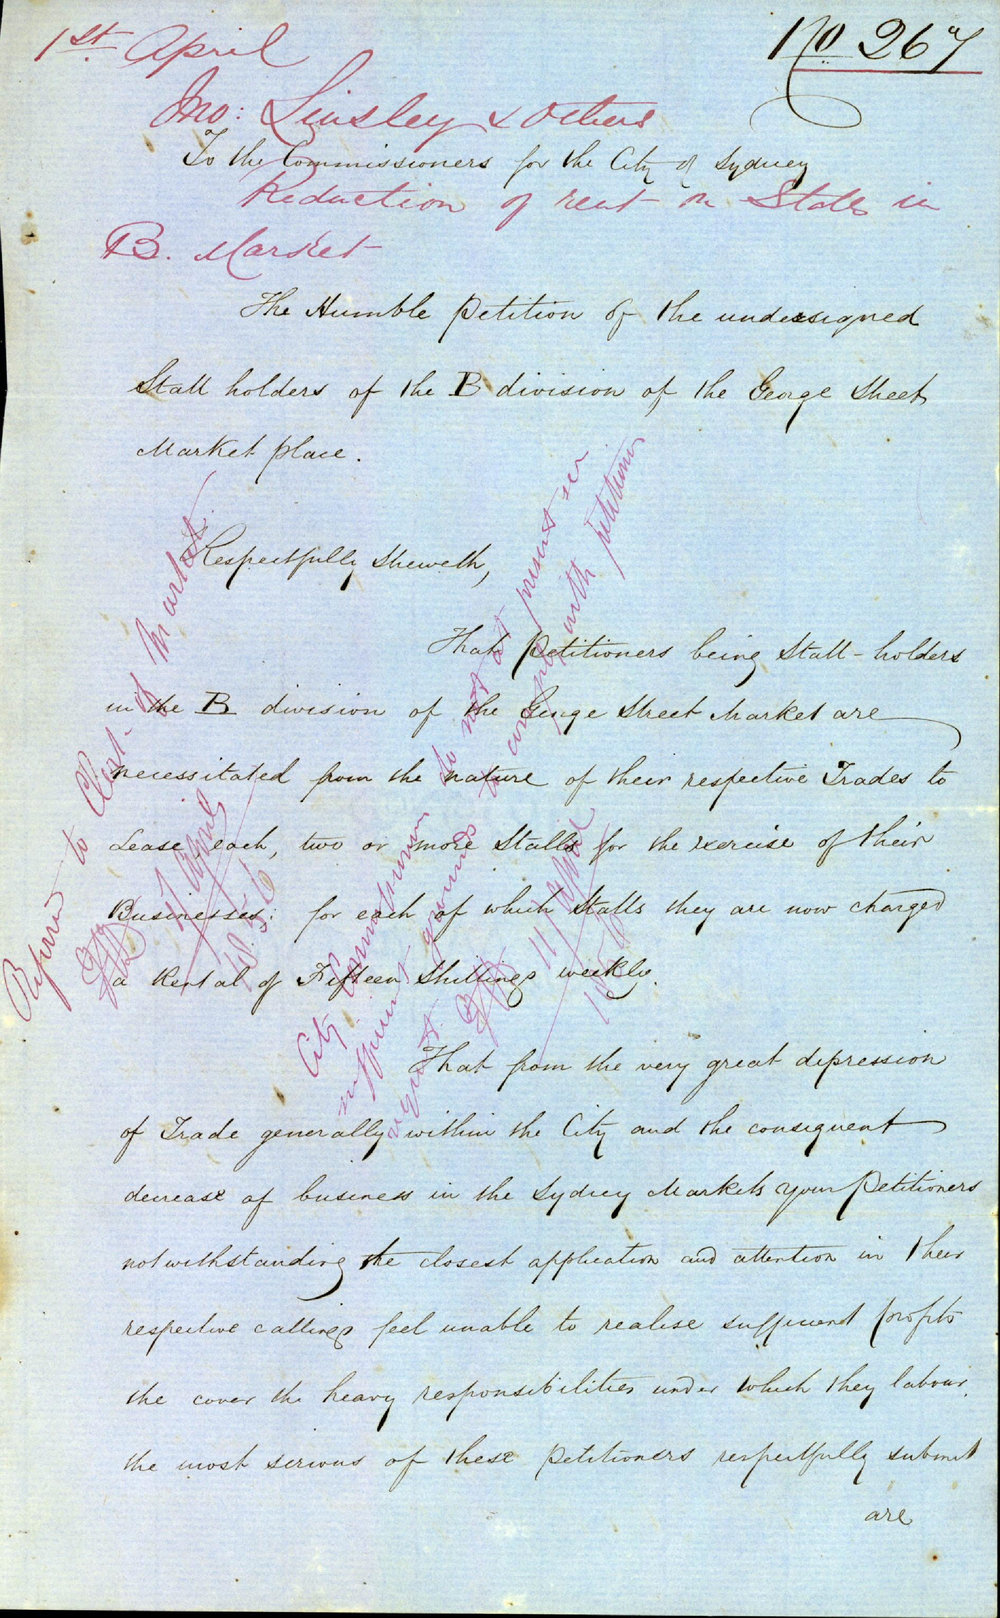 1st April
No 267
Jno: Linsley & Others
To the Commissioners for the City of Sydney
Reduction of rent on Stalls in
B. Market
The Humble Petition of the undersigned
Stall holders of the B division of the George Street
Market place.
Respectfully Sheweth,
That Petitioners being Stall-holders
in the B division of the George Street Market are
necessitated from the nature of their respective Trades to
Lease, each, two or more Stalls for the exercise of their
Businesses: for each of which Stalls they are now charged
a Rental of Fifteen Shillings weekly.
That from the very great depression
of Trade generally within the City and the consequent
decrease of business in the Sydney Markets your Petitioners
notwithstanding the closest application and attention in their
respective callings feel unable to realise sufficient profits
the cover the heavy responsibilities under which they labour,
the most serious of these Petitioners respectfully submit
are
Refered to Clerk of Market
7 April
1856
City Commissioners do not at present see
sufficient grounds to comply with petitioners
request.
11 April